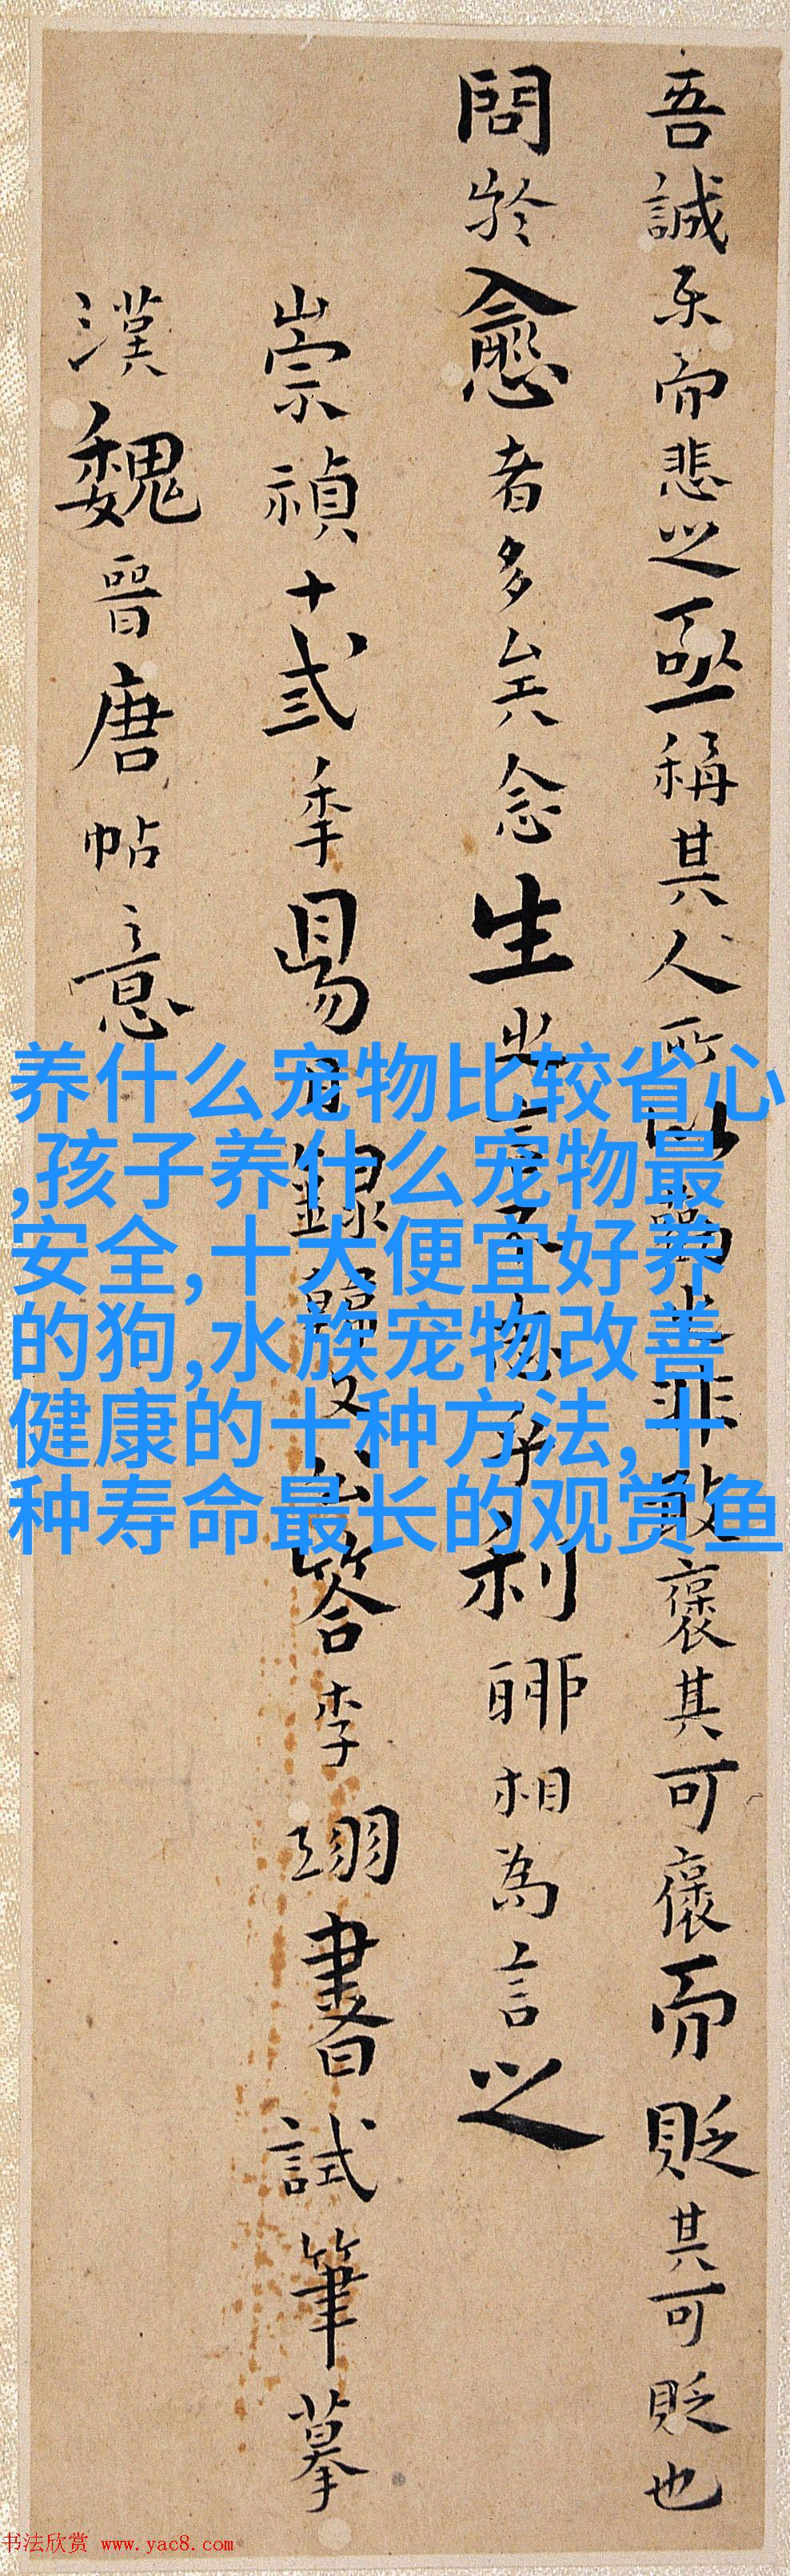 吾誠樂而悲之亟稱其人所以為者非敢褒其可褒而貶其可貶也
問於愈者多矣念生之言不為乎利聊相為言之
崇禎十弎季昜月錄韓文公答李翊書試筆摹
漢魏晉唐帖意
养什么宠物比较省心
,孩子养什么宠物最
安全,十大便宜好养
的狗,水族宠物改善
健康的十种方法,十
种寿命最长的观赏鱼
书法欣赏 www.yac8.com